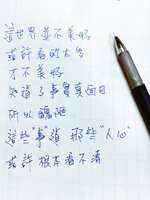 這世界並不美好
或許看的太多
才不美好
知道了事實真面目
所以醜陋
這些"事"這 那些"人心"
或許根本看不清